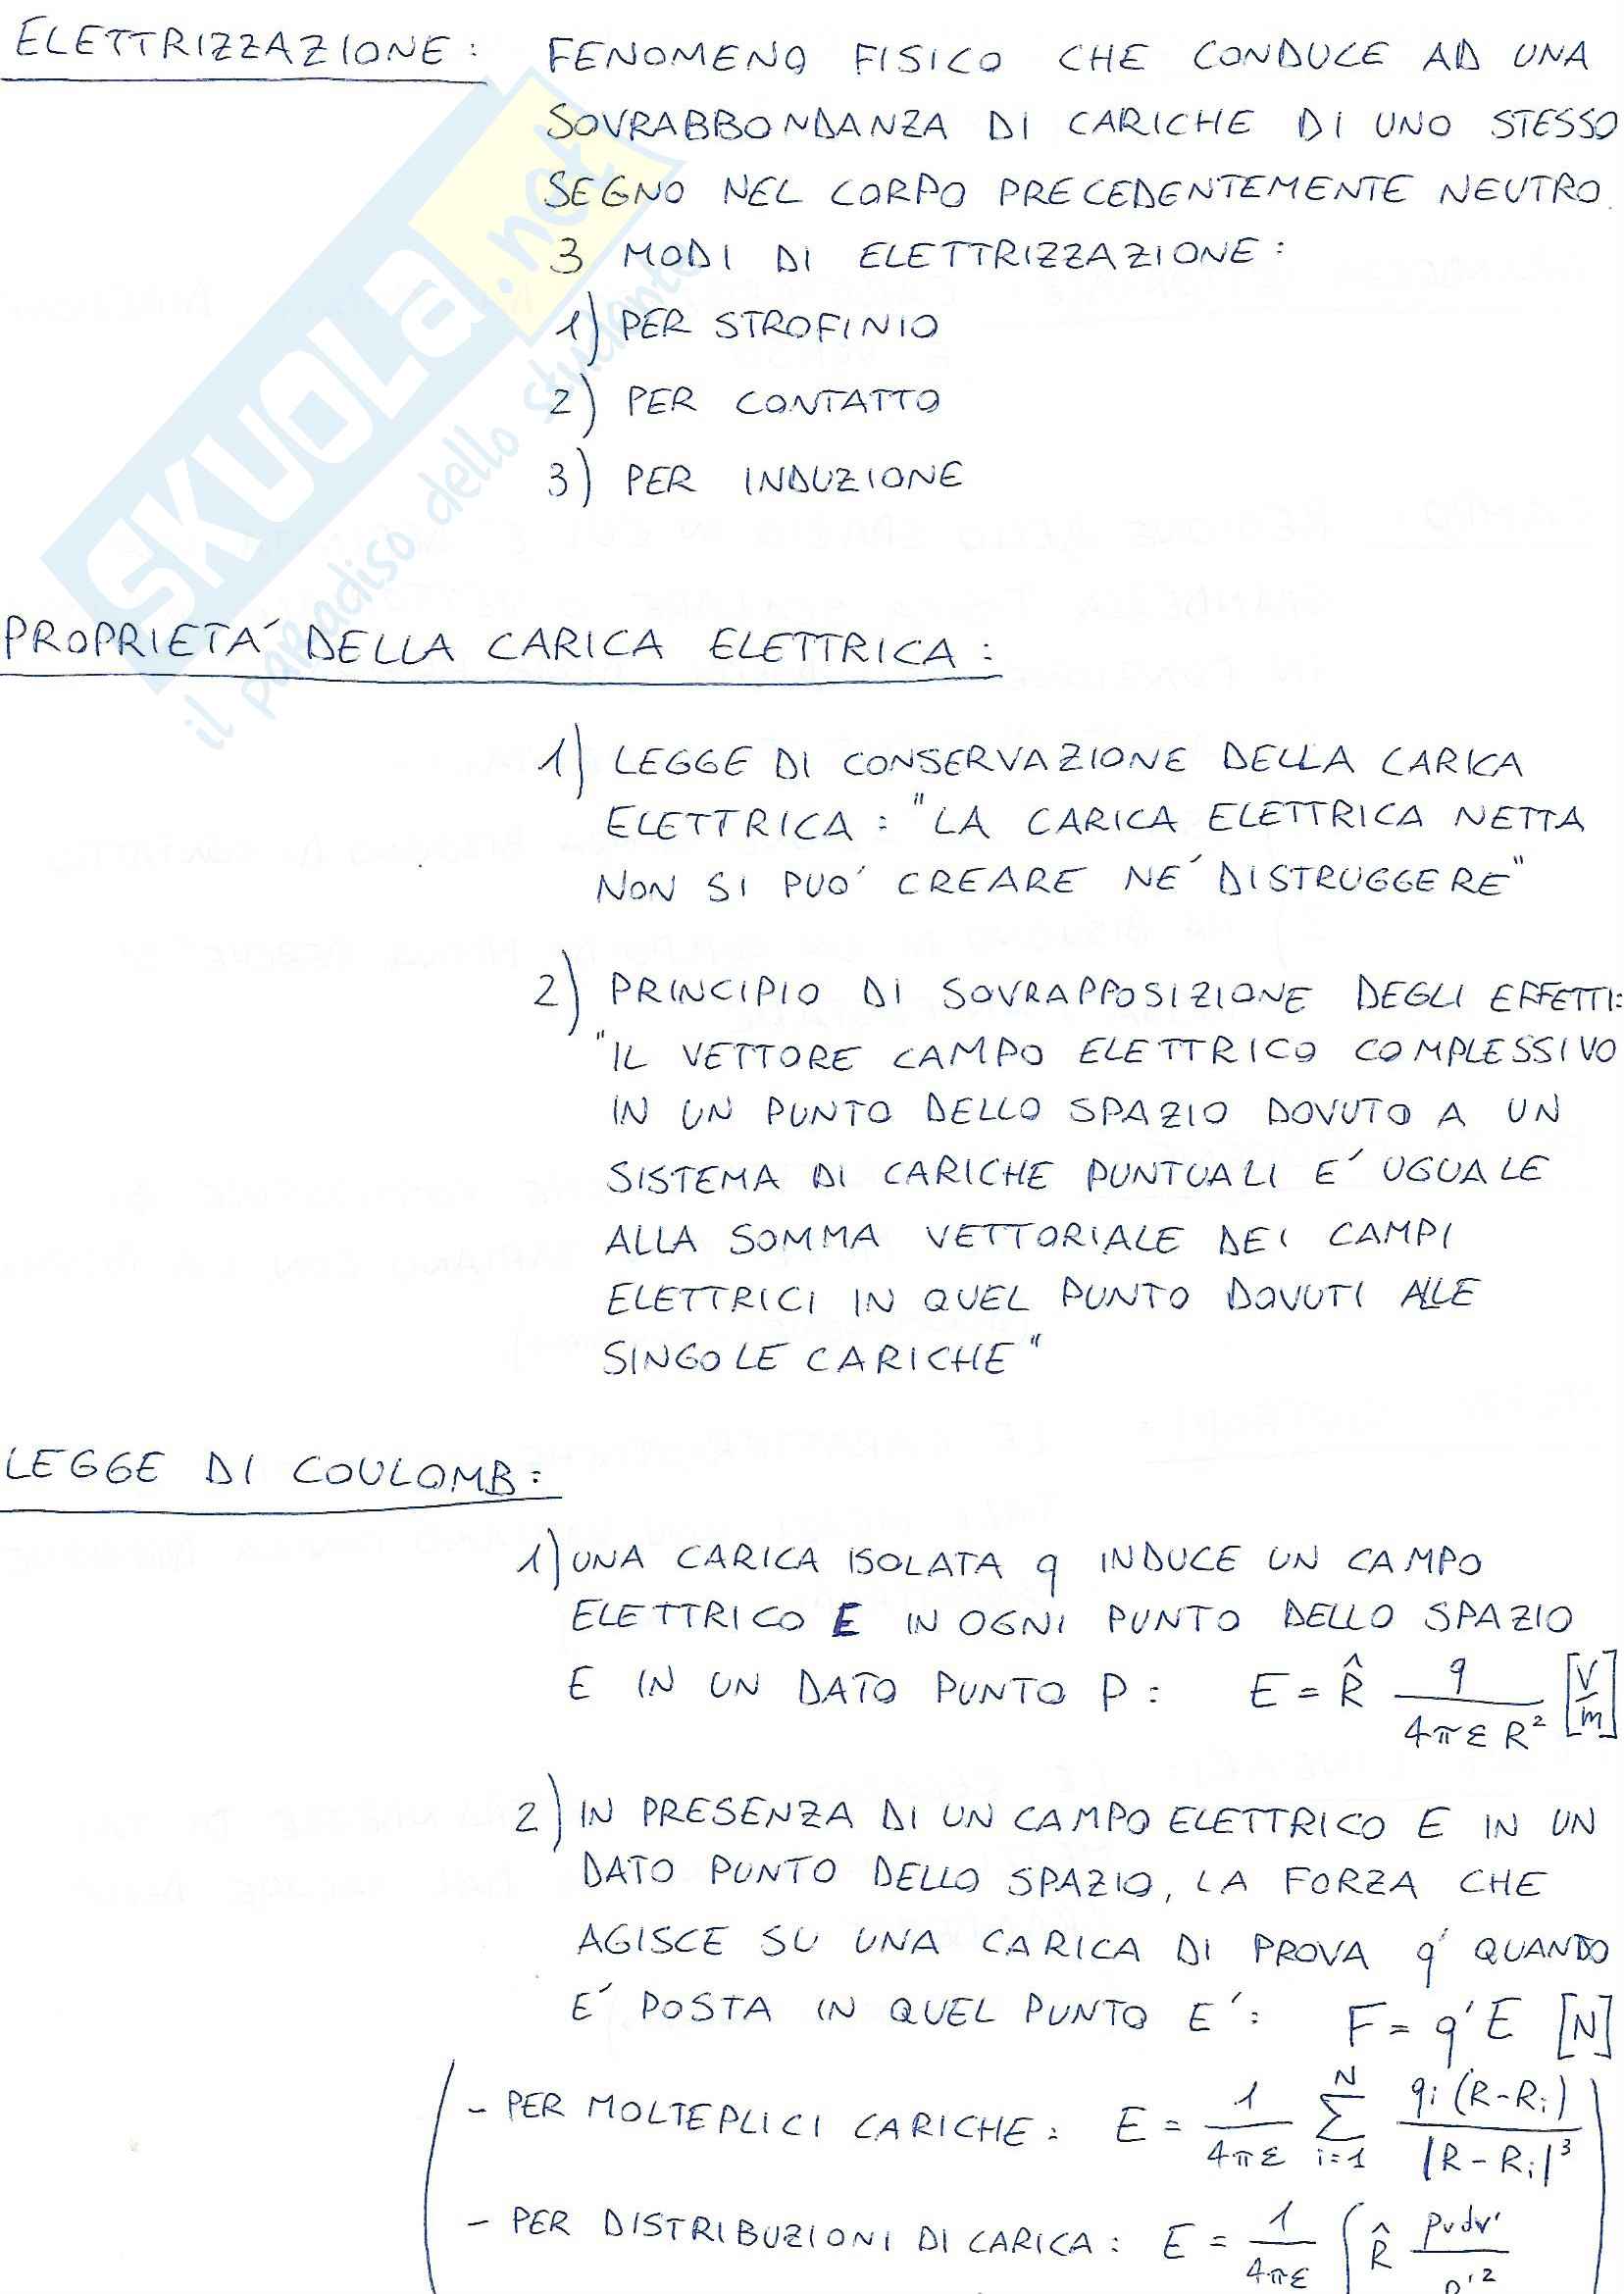 ELETTRIZZAZIONE: FENOMENO FISICO CHE CONDUCE AD UNA
SOVRABBONDANZA DI CARICHE DI UNO STESSO
SEGNO NEL CORPO PRECEDENTEMENTE NEUTRO.
3 MODI DI ELETTRIZZAZIONE:
1) PER STROFINIO
2) PER CONTATTO
3) PER INDUZIONE
SKUOLA.net
il paradiso dello studente
PROPRIETA' DELLA CARICA ELETTRICA:
1) LEGGE DI CONSERVAZIONE DELLA CARICA
ELETTRICA: "LA CARICA ELETTRICA NETTA
NON SI PUO' CREARE NE' DISTRUGGERE"
2) PRINCIPIO DI SOVRAPPOSIZIONE DEGLI EFFETTI:
"IL VETTORE CAMPO ELETTRICO COMPLESSIVO
IN UN PUNTO DELLO SPAZIO DOVUTO A UN
SISTEMA DI CARICHE PUNTUALI E' UGUALE
ALLA SOMMA VETTORIALE DEI CAMPI
ELETTRICI IN QUEL PUNTO DOVUTI ALLE
SINGOLE CARICHE"
LEGGE DI COULOMB:
1) UNA CARICA ISOLATA q INDUCE UN CAMPO
ELETTRICO E IN OGNI PUNTO DELLO SPAZIO
E IN UN DATO PUNTO P: E = R̂ q / 4πεR² [V/m]
2) IN PRESENZA DI UN CAMPO ELETTRICO E IN UN
DATO PUNTO DELLO SPAZIO, LA FORZA CHE
AGISCE SU UNA CARICA DI PROVA q' QUANDO
E' POSTA IN QUEL PUNTO E': F = q'E [N]
- PER MOLTEPLICI CARICHE: E = 1/4πε Σ i=1 N qi (R-Ri) / |R-Ri|³
- PER DISTRIBUZIONI DI CARICA: E = 1/4πε ∫ R̂ ρv dv' / R'²